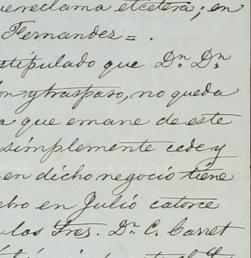 reclama etcétera; en
Fernandez = .
estipulado que Dn. Dn.
y traspaso, no queda
que emane de este
simplemente cede y
en dicho negocio tiene
en Julio catorce
los Sres. Dr. C. Carret